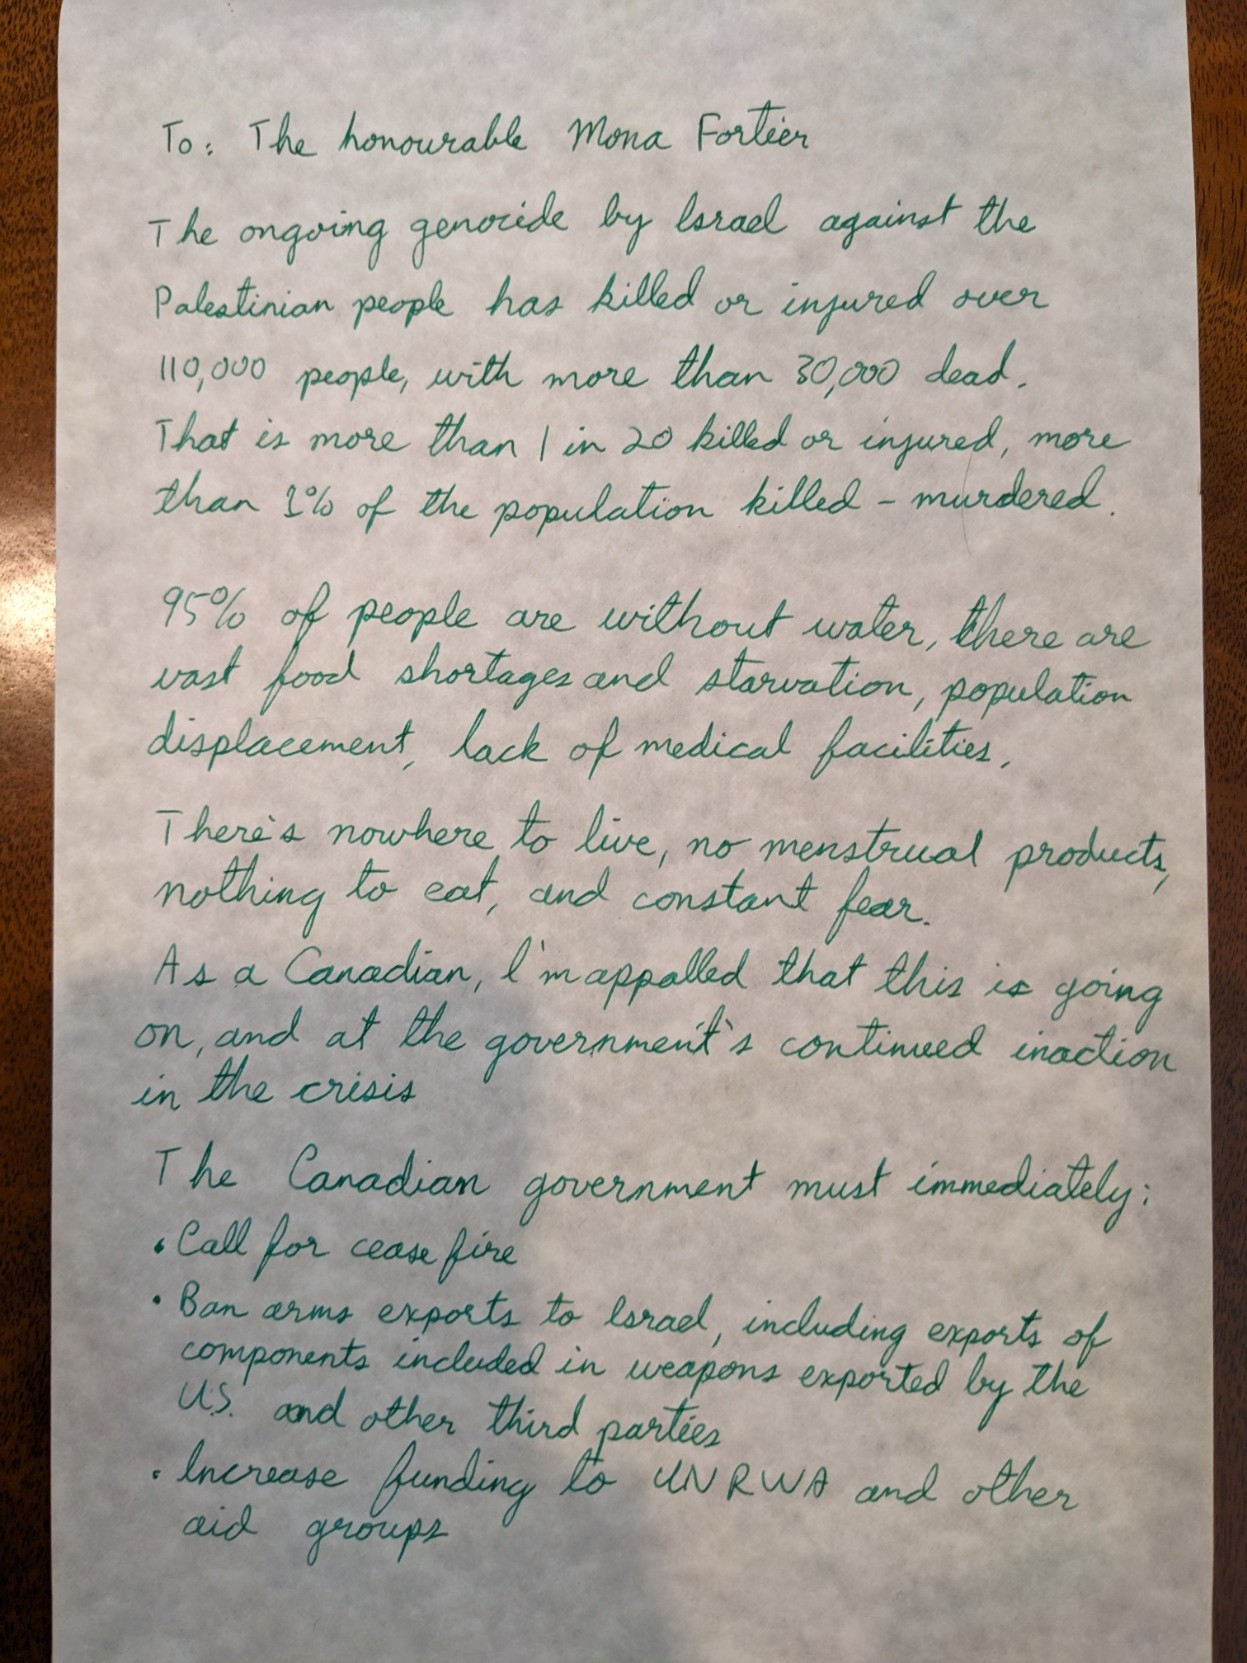 To: The honourable Mona Fortier
The ongoing genocide by Israel against the
Palestinian people has killed or injured over
110,000 people, with more than 30,000 dead.
That is more than 1 in 20 killed or injured, more
than 1% of the population killed - murdered.
95% of people are without water, there are
vast food shortages and starvation, population
displacement, lack of medical facilities.
There's nowhere to live, no menstrual products,
nothing to eat, and constant fear.
As a Canadian, I'm appalled that this is going
on, and at the government's continued inaction
in the crisis
The Canadian government must immediately:
• Call for cease fire
• Ban arms exports to Israel, including exports of
components included in weapons exported by the
U.S. and other third parties
• Increase funding to UNRWA and other
aid groups